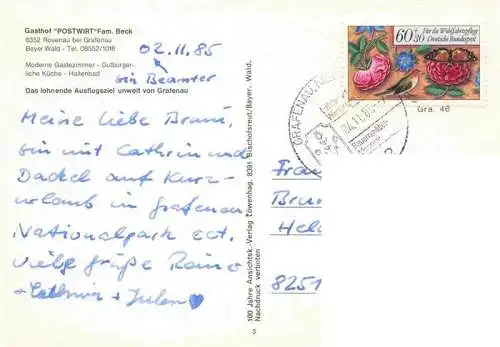 Gasthof "POSTWIRT" Fam. Beck
8352 Rosenau bei Grafenau
Bayer Wald - Tel. 08552/1016
Moderne Gästezimmer - Gutbürger-
liche Küche - Hallenbad
Das lohnende Ausflugsziel unweit von Grafenau
02.11.85
bin Beamter
Meine liebe Bruni,
bin mit Cathrin und
Dackel auf Kurz-
urlaub in Grafenau
Nationalpark ect.
viele Grüße
+ Cathrin + Julen ♥
100 Jahre Ansichtsk.-Verlag Löwenhag. 8391 Bischofsreut/Bayer. Wald.
Nachdruck verboten
3
60+30
Für die Wohlfahrtspflege
Deutsche Bundespost
Gra. 46
GRAFENAU
04.11.85
Frau
Brun
Hel
8251